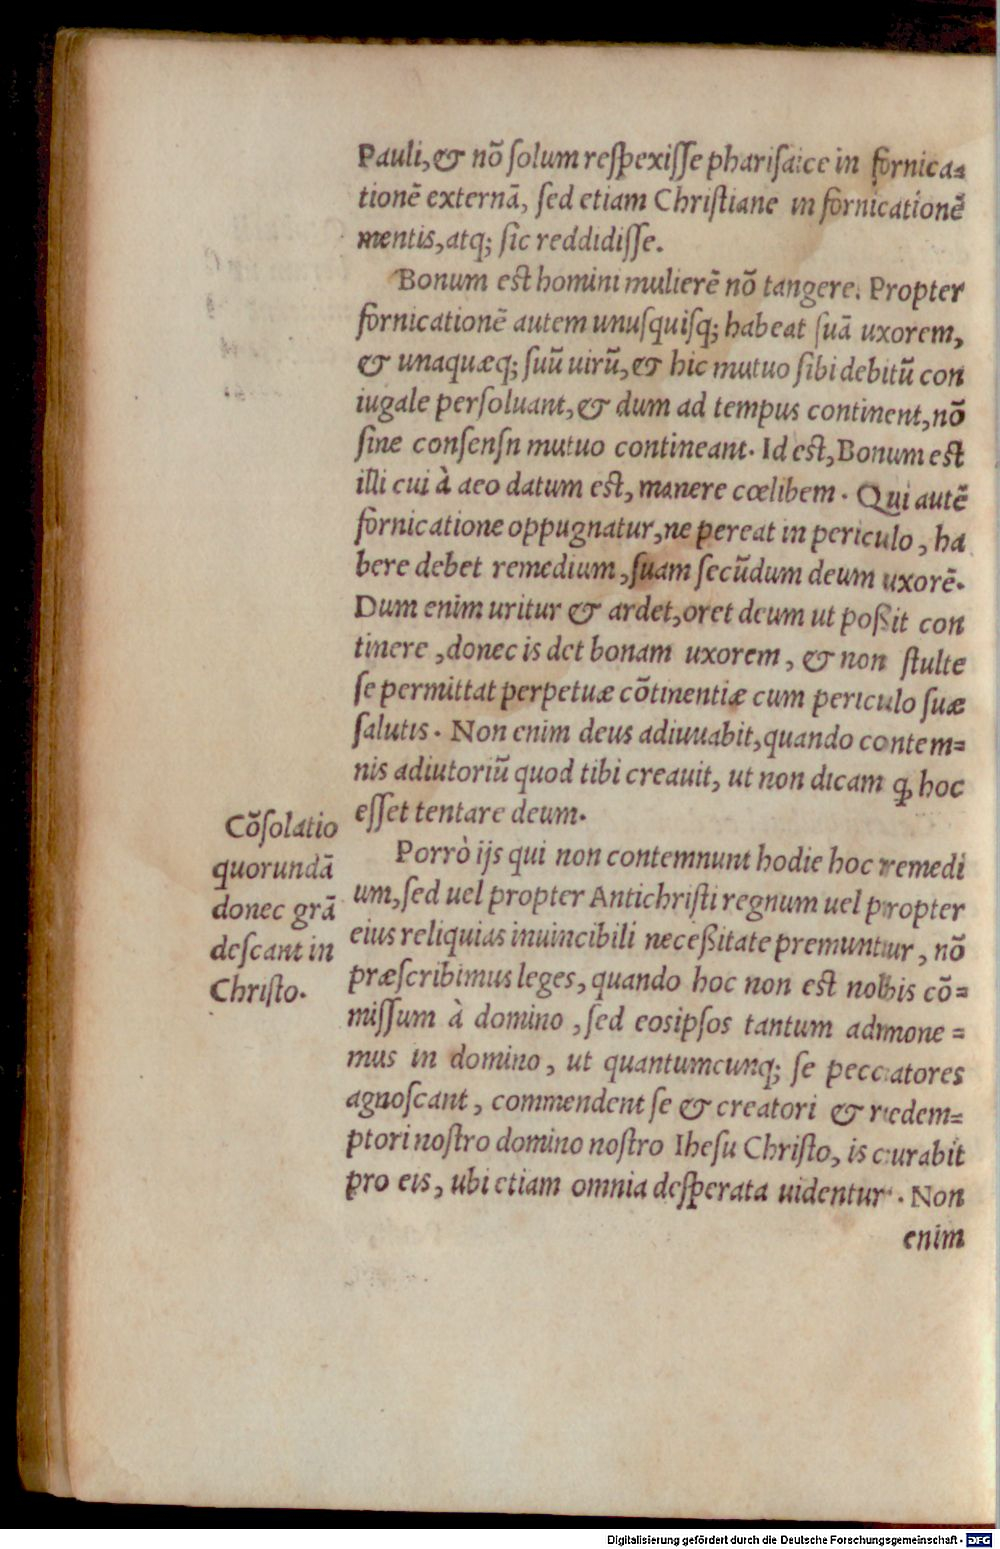 Pauli, & nō ſolum reſpexiſſe phariſaice in fornica=
tionē externā, ſed etiam Chriſtiane in fornicationē
mentis, atq; ſic reddidiſſe.
Bonum eſt homini mulierē nō tangere. Propter
fornicationē autem unuſquiſq; habeat ſuā uxorem,
& unaquæq; ſuū uirū, & hic mutuo ſibi debitū con
iugale perſoluant, & dum ad tempus continent, nō
ſine conſenſn mutuo contineant. Id eſt, Bonum eſt
illi cui à aeo datum eſt, manere cœlibem. Qui autē
fornicatione oppugnatur, ne pereat in periculo, ha
bere debet remedium, ſuam ſecūdum deum uxorē.
Dum enim uritur & ardet, oret deum ut poßit con
tinere, donec is det bonam uxorem, & non ſtulte
ſe permittat perpetuæ cōtinentiæ cum periculo ſuæ
ſalutis. Non enim deus adiuuabit, quando contem=
nis adiutoriū quod tibi creauit, ut non dicam ꝙ hoc
eſſet tentare deum.
Porrò ijs qui non contemnunt hodie hoc remedi
um, ſed uel propter Antichriſti regnum uel propter
eius reliquias inuincibili neceßitate premuntur, nō
præſcribimus leges, quando hoc non eſt nobis cō=
miſſum à domino, ſed eosipſos tantum admone=
mus in domino, ut quantumcunq; ſe peccatores
agnoſcant, commendent ſe & creatori & redem=
ptori noſtro domino noſtro Iheſu Chriſto, is curabit
pro eis, ubi etiam omnia deſperata uidentur. Non
enim
Cōſolatio
quorundā
donec grā
deſcant in
Chriſto.
Digitalisierung gefördert durch die Deutsche Forschungsgemeinschaft - DFG